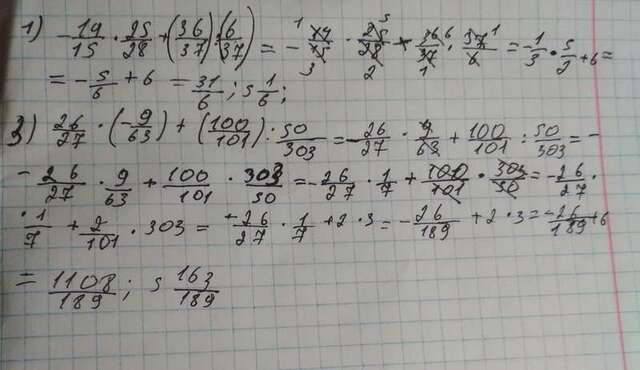 1) - 19/15 · 25/28 + (36/37) : (6/37) = - 14/15 · 25/28 + 36/37 · 37/6 = - 1/3 · 5/2 + 6 =
= - 5/6 + 6 = 31/6 ; 5 1/6 ;
3) 26/27 · (- 9/63) + (100/101) : 50/303 = - 26/27 · 9/63 + 100/101 : 50/303 = -
- 26/27 · 9/63 + 100/101 · 303/50 = - 26/27 · 1/7 + 100/101 · 303/50 = - 26/27 ·
· 1/7 + 2/101 · 303 = - 26/27 · 1/7 + 2 · 3 = - 26/189 + 2 · 3 = - 26/189 + 6
= 1108/189 ; 5 163/189